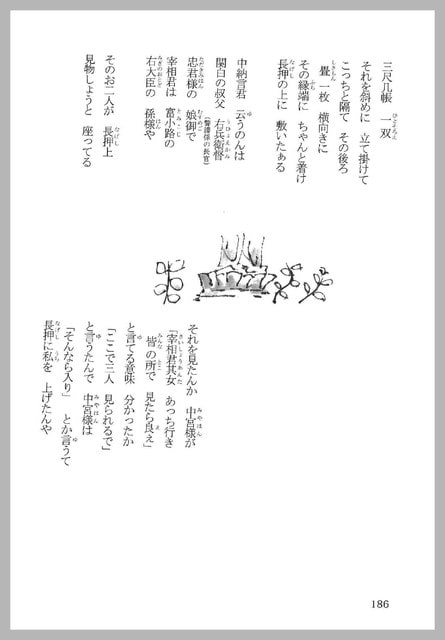 三尺几帳　一双
それを斜めに　立て掛けて
こっちと隔て　その後ろ
畳一枚　横向きに
その縁端に　ちゃんと着け
長押の上に　敷いたある
中納言君　云うのんは
関白の叔父　右兵衛督(警護係の長官)
忠君様の　娘御で
宰相君は　富小路の
右大臣の　孫様や
そのお二人が　長押上
見物しょうと　座ってる
それを見たんか　中宮様が
「宰相君其女　あっち行き
皆の所で　見たら良え」
と言てる意味　分かったか
「ここで三人　見られるで」
と言うたんで　中宮様は
「そんなら入り」　とか言うて
長押に私を　上げたんや
186